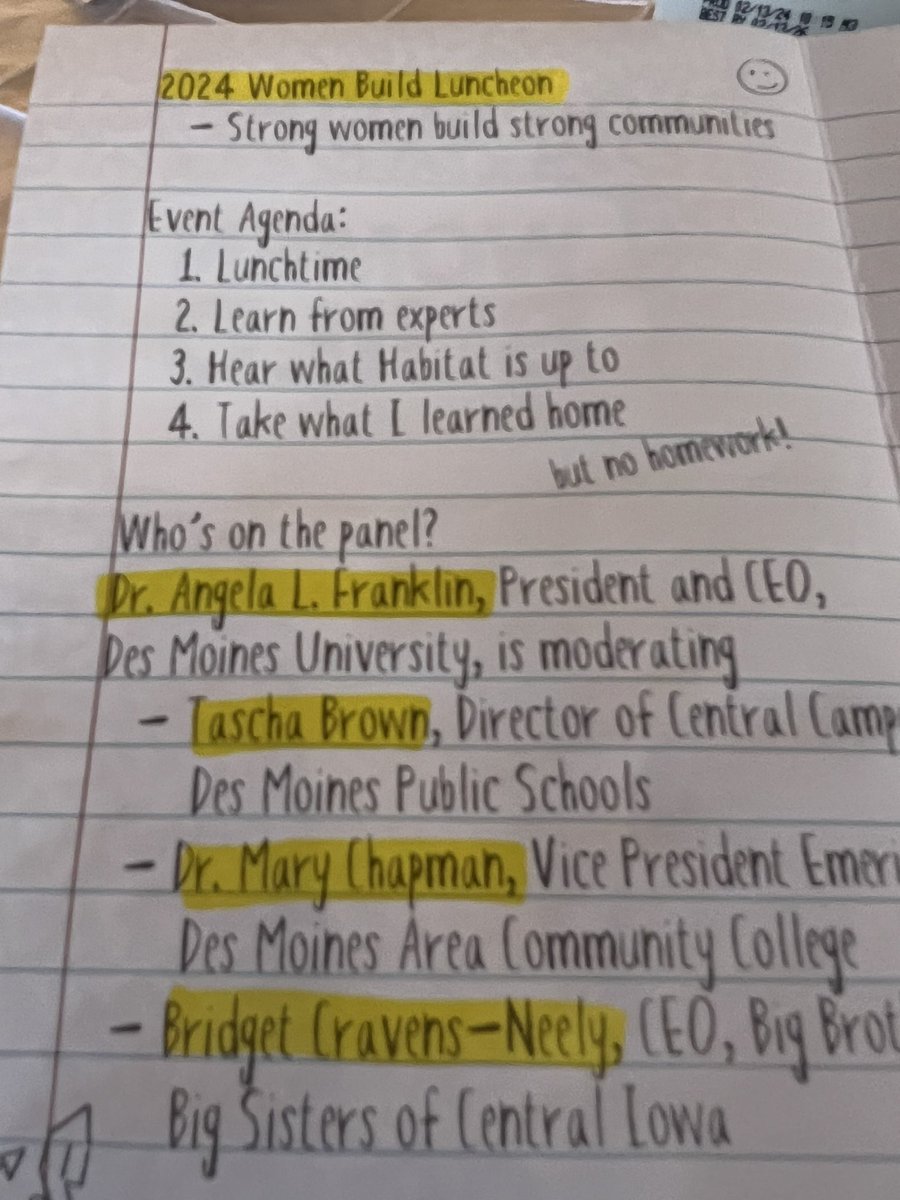 2024 Women Build Luncheon
– Strong women build strong communities
Event Agenda:
1. Lunchtime
2. Learn from experts
3. Hear what Habitat is up to
4. Take what I learned home
but no homework!
Who's on the panel?
Dr. Angela L. Franklin, President and CEO,
Des Moines University, is moderating
– Tascha Brown, Director of Central Camp
Des Moines Public Schools
– Dr. Mary Chapman, Vice President Emeri
Des Moines Area Community College
– Bridget Cravens-Neely, CEO, Big Brot
Big Sisters of Central Iowa